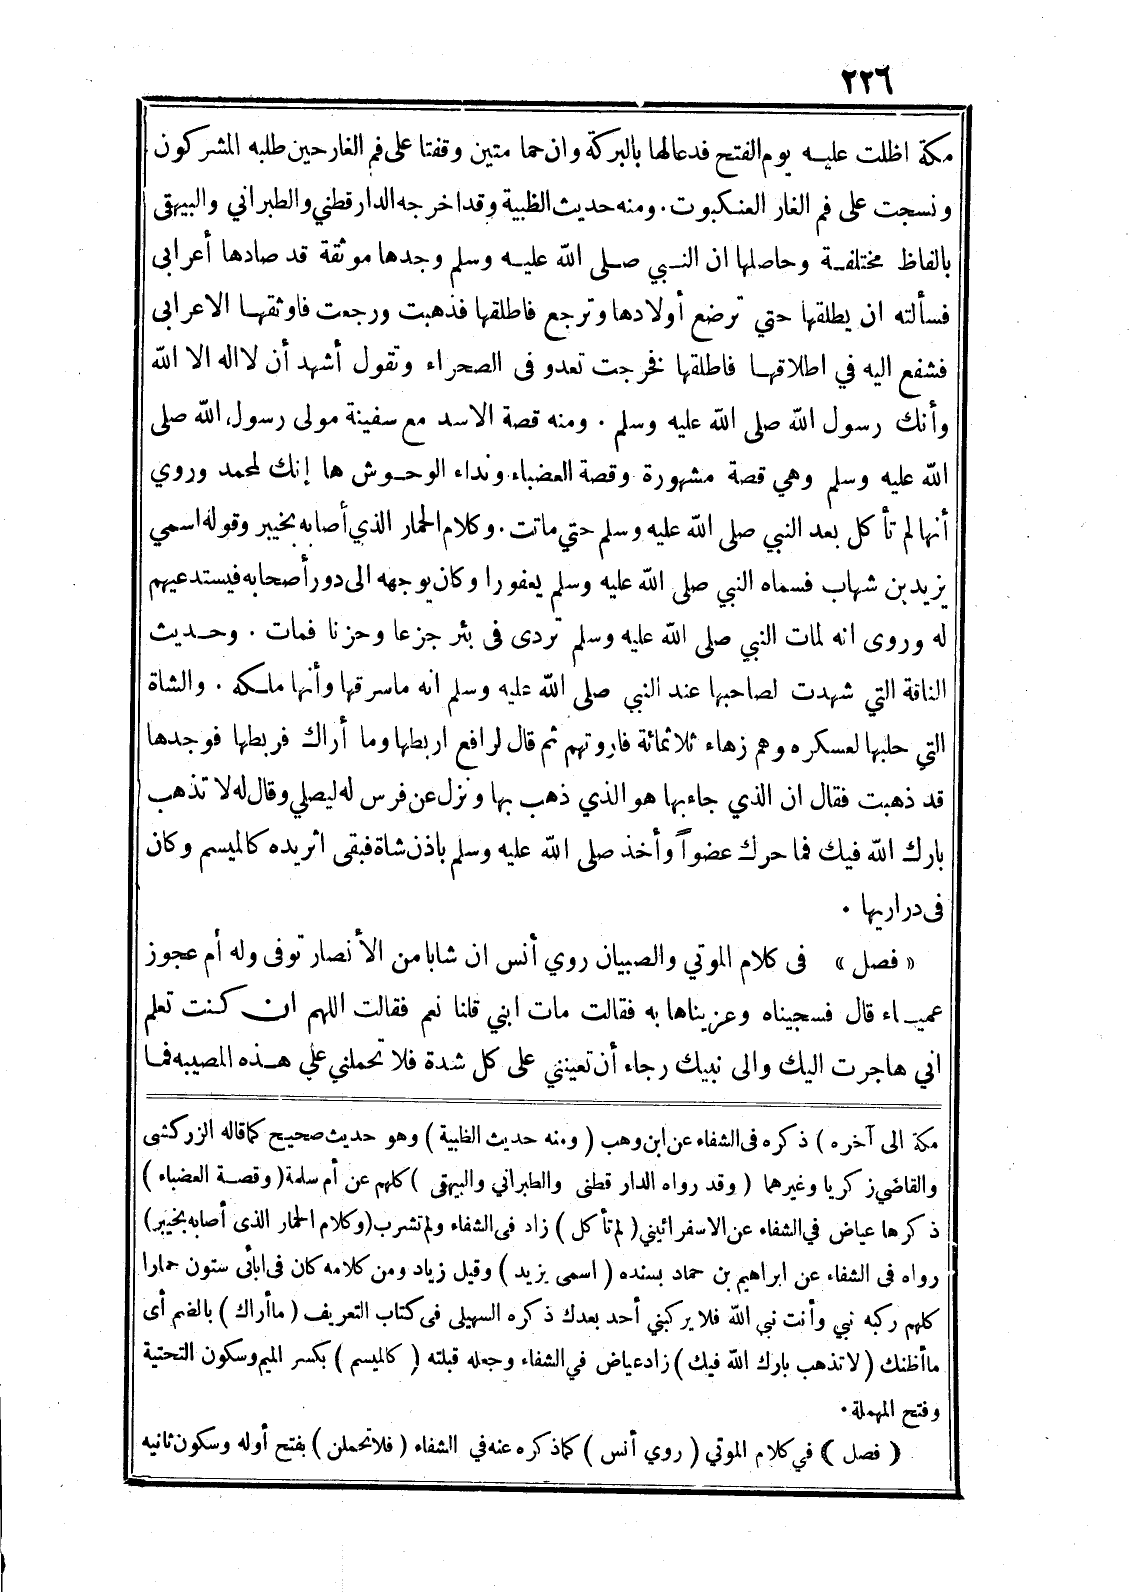 ٢٢٦
مكة اظلت عليه يوم الفتح فدعا لها بالبركة وان حما متين وقفتا على فم الغار حين طلبه المشركون
ونسجت على فم الغار العنكبوت . ومنه حديث الظبية وقد اخرجه الدار قطني والطبراني والبيهقى
بالفاظ مختلفة وحاصلها ان النبي صلى الله عليه وسلم وجدها موثقة قد صادها أعرابى
فسألته ان يطلقها حتي ترضع أولادها وترجع فاطلقها فذهبت ورجعت فاوثقها الاعرابى
فشفع اليه في اطلاقها فاطلقها فخرجت تعدو فى الصحراء وتقول أشهد أن لااله الا الله
وأنك رسول الله صلى الله عليه وسلم . ومنه قصة الاسد مع سفينة مولى رسول الله صلى
الله عليه وسلم وهي قصة مشهورة وقصة العضباء ونداء الوحوش ها إنك لمحمد وروي
أنها لم تأكل بعد النبي صلى الله عليه وسلم حتي ماتت . وكلام الحمار الذي أصابه بخيبر وقوله اسمي
يزيد بن شهاب فسماه النبي صلى الله عليه وسلم يعفورا وكان يوجهه الى دور أصحابه فيستدعيهم
له وروى انه لمات النبي صلى الله عليه وسلم تردى فى بئر جزعا وحزنا فمات . وحديث
الناقة التي شهدت لصاحبها عند النبي صلى الله عليه وسلم انه ماسرقها وأنها ملكه . والشاة
التي حلبها لعسكره وهم زهاء ثلاثمائة فاروتهم ثم قال لرافع اربطها وما أراك فربطها فوجدها
قد ذهبت فقال ان الذي جاء بها هو الذي ذهب بها ونزل عن فرس له ليصلي وقال له لا تذهب
بارك الله فيك فما حرك عضواً وأخذ صلى الله عليه وسلم باذن شاة فبقى اثر يده كالميسم وكان
فى دراريها .
« فصل » فى كلام الموتي والصبيان روي أنس ان شابا من الأنصار توفى وله أم عجوز
عمياء قال فسجيناه وعزيناها به فقالت مات ابني قلنا نعم فقالت اللهم ان كنت تعلم
اني هاجرت اليك والى نبيك رجاء أن تعينني على كل شدة فلا تحملني علي هذه المصيبه فما
مكة الى آخره ) ذكره فى الشفاء عن ابن وهب ( ومنه حديث الظبية ) وهو حديث صحيح كما قاله الزركشى
والقاضي زكريا وغيرهما ( وقد رواه الدار قطنى والطبراني والبيهقى ) كلهم عن أم سلمة ( وقصة العضباء )
ذكرها عياض في الشفاء عن الاسفرائيني ( لم تأكل ) زاد فى الشفاء ولم تشرب ( وكلام الحمار الذى أصابه بخيبر )
رواه فى الشفاء عن ابراهيم بن حماد بسنده ( اسمى يزيد ) وقيل زياد ومن كلامه كان فى ابائى ستون حمارا
كلهم ركبه نبي وأنت نبي الله فلا يركبني أحد بعدك ذكره السهيلى فى كتاب التعريف ( ماأراك ) بالضم أى
ماأظنك ( لا تذهب بارك الله فيك ) زاد عياض في الشفاء وجعله قبلته ( كالميسم ) بكسر الميم وسكون التحتية
وفتح المهملة .
( فصل ) في كلام الموتي ( روي أنس ) كما ذكره عنه في الشفاء ( فلا تحملن ) بفتح أوله وسكون ثانيه